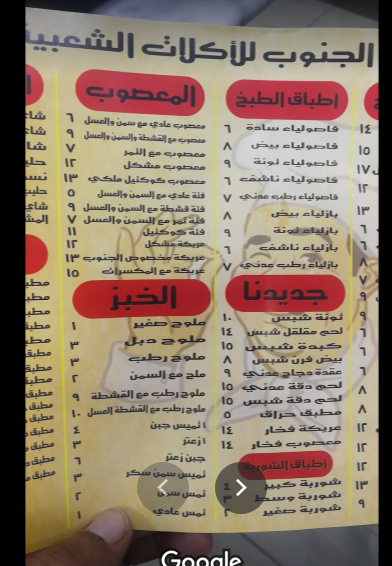 الجنوب للأكلات الشعبية
اطباق الطبخ
فاصولياء سادة ٦
فاصولياء بيض ٨
فاصولياء تونة ٩
فاصولياء ناشف ٦
فاصولياء رطب عدني ٧
بازلياء بيض ٨
بازلياء تونة ٩
بازلياء ناشف ٦
بازلياء رطب عدني ٧
جديدنا
تونة شبس ١٠
لحم مقلقل شبس ١٤
كبدة شبس ١٥
بيض فرن شبس ٨
عقدة دجاج عدني ٩
لحم دقة عدني ١٥
لحم دقة شبس ١٥
مطبق حراق ٥
عريكة فخار ١٤
معصوب فخار ١٤
اطباق الشوربة
شوربة كبير ٤
شوربة وسط ٣
شوربة صغير ٢
المعصوب
معصوب عادي مع سمن والعسل ٦
معصوب مع القشطة والسمن والعسل ٩
معصوب مع التمر ٧
معصوب مشكل ١٢
معصوب كوكتيل ملكي ١٣
فتة عادي مع السمن والعسل ٥
فتة قشطة مع السمن والعسل ٩
فتة تمر مع السمن والعسل ٧
فتة كوكتيل ١١
عريكة مشكل ١٢
عريكة مخصوص الجنوب ١٣
عريكة مع المكسرات ١٥
الخبز
ملوح صغير ١
ملوح دبل ٣
ملوح رطب ٣
ملح مع السمن ٢
ملوح رطب مع القشطة ٩
ملوح رطب مع القشطة العسل ١٠
تميس جبن ٤
زعتر ٣
جبن زعتر ٦
تميس سمن سكر ٣
تمس سمن ٢
تمس عادي ١
Google